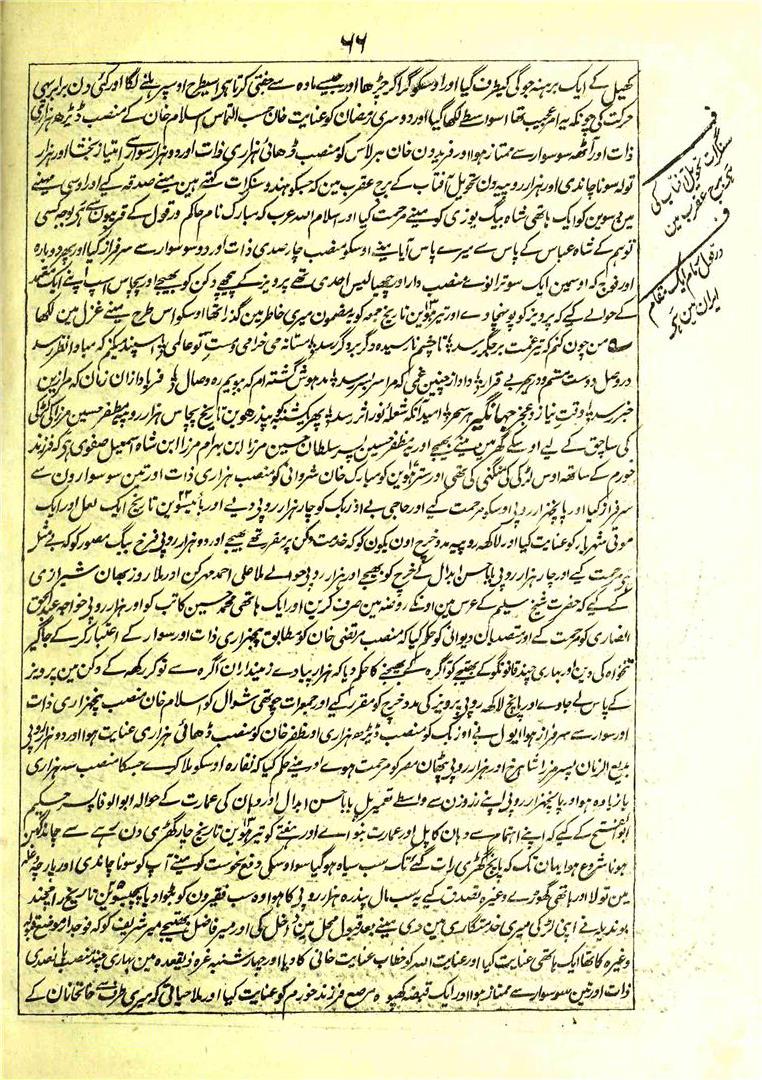 ۶۶
کھیل کے ایک برہنہ جوگی کیطرف گیا اور اوسکو گرا کر چڑھا اور جیسے مادہ سے جفتی کرتا ہی اسیطرح اوسپر ہلنے لگا اور کئی دن برابر یہی
حرکت کی چونکہ یہ امر عجیب تھا اسواسطے لکھا گیا اور دوسری رمضان کو عنایت خان حسب التماس اسلام خان کے منصب ڈیڑھ ہزاری
ذات اور آٹھ سو سوار سے ممتاز ہوا اور فریدون خان برلاس کو منصب ڈھائی ہزاری ذات اور دو ہزار سوار سے امتیاز بخشا اور ہزار
تولہ سونا چاندی اور ہزار روپیہ دن تحویل آفتاب کے برج عقرب مین کہ جسکو ہندو سنکرات کہتے ہین مینے صدقہ کیے اور اوسی مہینے
مین دسوین کو ایک ہاتھی شاہ بیگ یوزی کو مینے مرحمت کیا اور اسلام اللہ عرب کہ مبارک نام حاکم درفول کے قریبون سے ہی بوجہ کسی
توہم کے شاہ عباس کے پاس سے میرے پاس آیا مینے اوسکو منصب چار صدی ذات اور دو سو سوار سے سرفراز کیا اور پھر دوبارہ
اور فوج کہ اوسمین ایک سو ترانوے منصب دار اور چھیالیس احدی تھے پرویز کے پیچھے دکن کو بھیجے اور پچاس اسپ اپنے ایک معتمد
کے حوالے کیے کہ پرویز کو پونہچا دے اور تیرہوین تاریخ جمعہ کو یہ مضمون میری خاطر مین گذرا تھا اوسکو اس طرح مینے غزل مین لکھا
من چون کنم کہ تیر غمت بر جگر رسد تا چشم نا رسیدہ دگر بر دگر رسد مستانہ می خرامی و مست تو عالمی اسپند میکنم کہ مبادا نظر رسد
در وصل دوست مستم و در ہجر بے قرار داد از چنین غمی کہ مرا سر بسر رسد مدہوش گشتہ ام کہ بپویم رہ وصال فریاد ازان زمان کہ مرا زین
خبر رسد وقت نیاز و عجز جہانگیر ہر سحر امید آنکہ شعلہ نور اثر رسد پھر یکشنبہ کو پندرھوین تاریخ پچاس ہزار روپیہ مظفر حسین مرزا کی لڑکی
کی ساچق کے لیے اوسکے گھر مین مینے بھیجے اور یہ مظفر حسین پسر سلطان حسین مرزا ابن بہرام مرزا ابن شاہ اسمعیل صفوی ہی کہ فرزند
خورم کے ساتھ اوس لڑکی کی منگنی کی تھی اور سترہوین کو مبارک خان شروانی کو منصب ہزاری ذات اور تین سو سوارون سے
سرفراز کیا اور پانچ ہزار روپی اوسکو مرحمت کیے اور حاجی بے اوزبک کو چار ہزار روپی دیے اور بائیسوین تاریخ ایک لعل اور ایک
موتی شہریار کو عنایت کیا اور لاکھ روپیہ مدد خرچ اون یکون کو کہ خدمت دکن پر مقرر تھے بھیجے اور دو ہزار روپی فرخ بیگ مصور کو کہ بے مثل
ہی مرحمت کیے اور چار ہزار روپی بابا حسن ابدال کے خرچ کو بھیجے اور ہزار روپی حوالے ملا علی احمد مہر کن اور ملا روزبھان شیرازی
کے کیے کہ حضرت شیخ سلیم کے عرس مین اونکے روضہ مین صرف کرین اور ایک ہاتھی محمد حسین کاتب کو اور ہزار روپی خواجہ عبدالحق
انصاری کو مرحمت کیے اور متصدیان دیوانی کو حکم کیا کہ منصب مرتضی خان کو مطابق پنجہزاری ذات اور سوار کے اعتبار کرکے جاگیر
تنخواہ کی دین اور بہاری چند قانونگو کے بھتیجے کو آگرہ کے بھیجنے کا حکم دیا کہ ہزار پیادے زمینداران آگرہ سے نوکر رکھ کے دکن مین پرویز
کے پاس لے جاوے اور پانچ لاکھ روپی پرویز کی مدد خرچ کو مقرر کیے اور جمعرات چوتھی شوال کو اسلام خان منصب پنجہزاری ذات
اور سوار سے سرفراز ہوا ابول بے اوزبک کو منصب ڈیڑھ ہزاری اور ظفر خان کو منصب ڈھائی ہزاری عنایت ہوا اور دو ہزار روپی
بدیع الزمان پسر مرزا شاہرخ اور ہزار روپی پٹھان مصر کو مرحمت ہوے اور مینے حکم کیا کہ نقارہ اوسکو ملا کرے جسکا منصب سہ ہزاری
یا زیادہ ہو اور پانچہزار روپی اپنے زر وزن سے واسطے تعمیر پل بابا حسن ابدال اور وہان کی عمارت کے حوالہ ابوالوفا پسر حکیم
ابوالفتح کے کیے کہ اپنے اہتمام سے وہان کا پل اور عمارت بنواے اور ہفتے کو تیرہوین تاریخ چار گھڑی دن رہے سے چاند گہن
ہونا شروع ہوا یہان تک کہ پانچ گھڑی رات گئے تک سب سیاہ ہوگیا سو اوسکی دفع نحوست کو مینے آپ کو سونا چاندی اور پارچہ و غلہ
مین تولا اور ہاتھی گھوڑے وغیرہ تصدق کیے یہ سب مال پندرہ ہزار روپی کا ہوا وہ سب فقیرون کو بٹوا دیا پچیسوین تاریخ رامچند
بوندیلہ نے اپنی لڑکی میری خدمتگاری مین دی مینے بعد قبول محل مین داخل کی اور میر فاضل بھتیجے میر شریف کو کہ فوجدار موضع قبولہ
وغیرہ کا تھا ایک ہاتھی عنایت کیا اور عنایت اللہ کو خطاب عنایت خانی کا دیا اور چہارشنبہ غرہ ذیقعدہ مین بہاری چند منصب پانصدی
ذات اور تین سو سوار سے ممتاز ہوا اور ایک قبضہ کھپوہ مرصع فرزند خورم کو عنایت کیا اور ملا حیاتی کہ میری طرف سے خانخانان کے
ف
سنکرات تحویل آفتاب کی
ہی برج عقرب مین
ف
درفول نام ایک مقام
ایران مین ہی